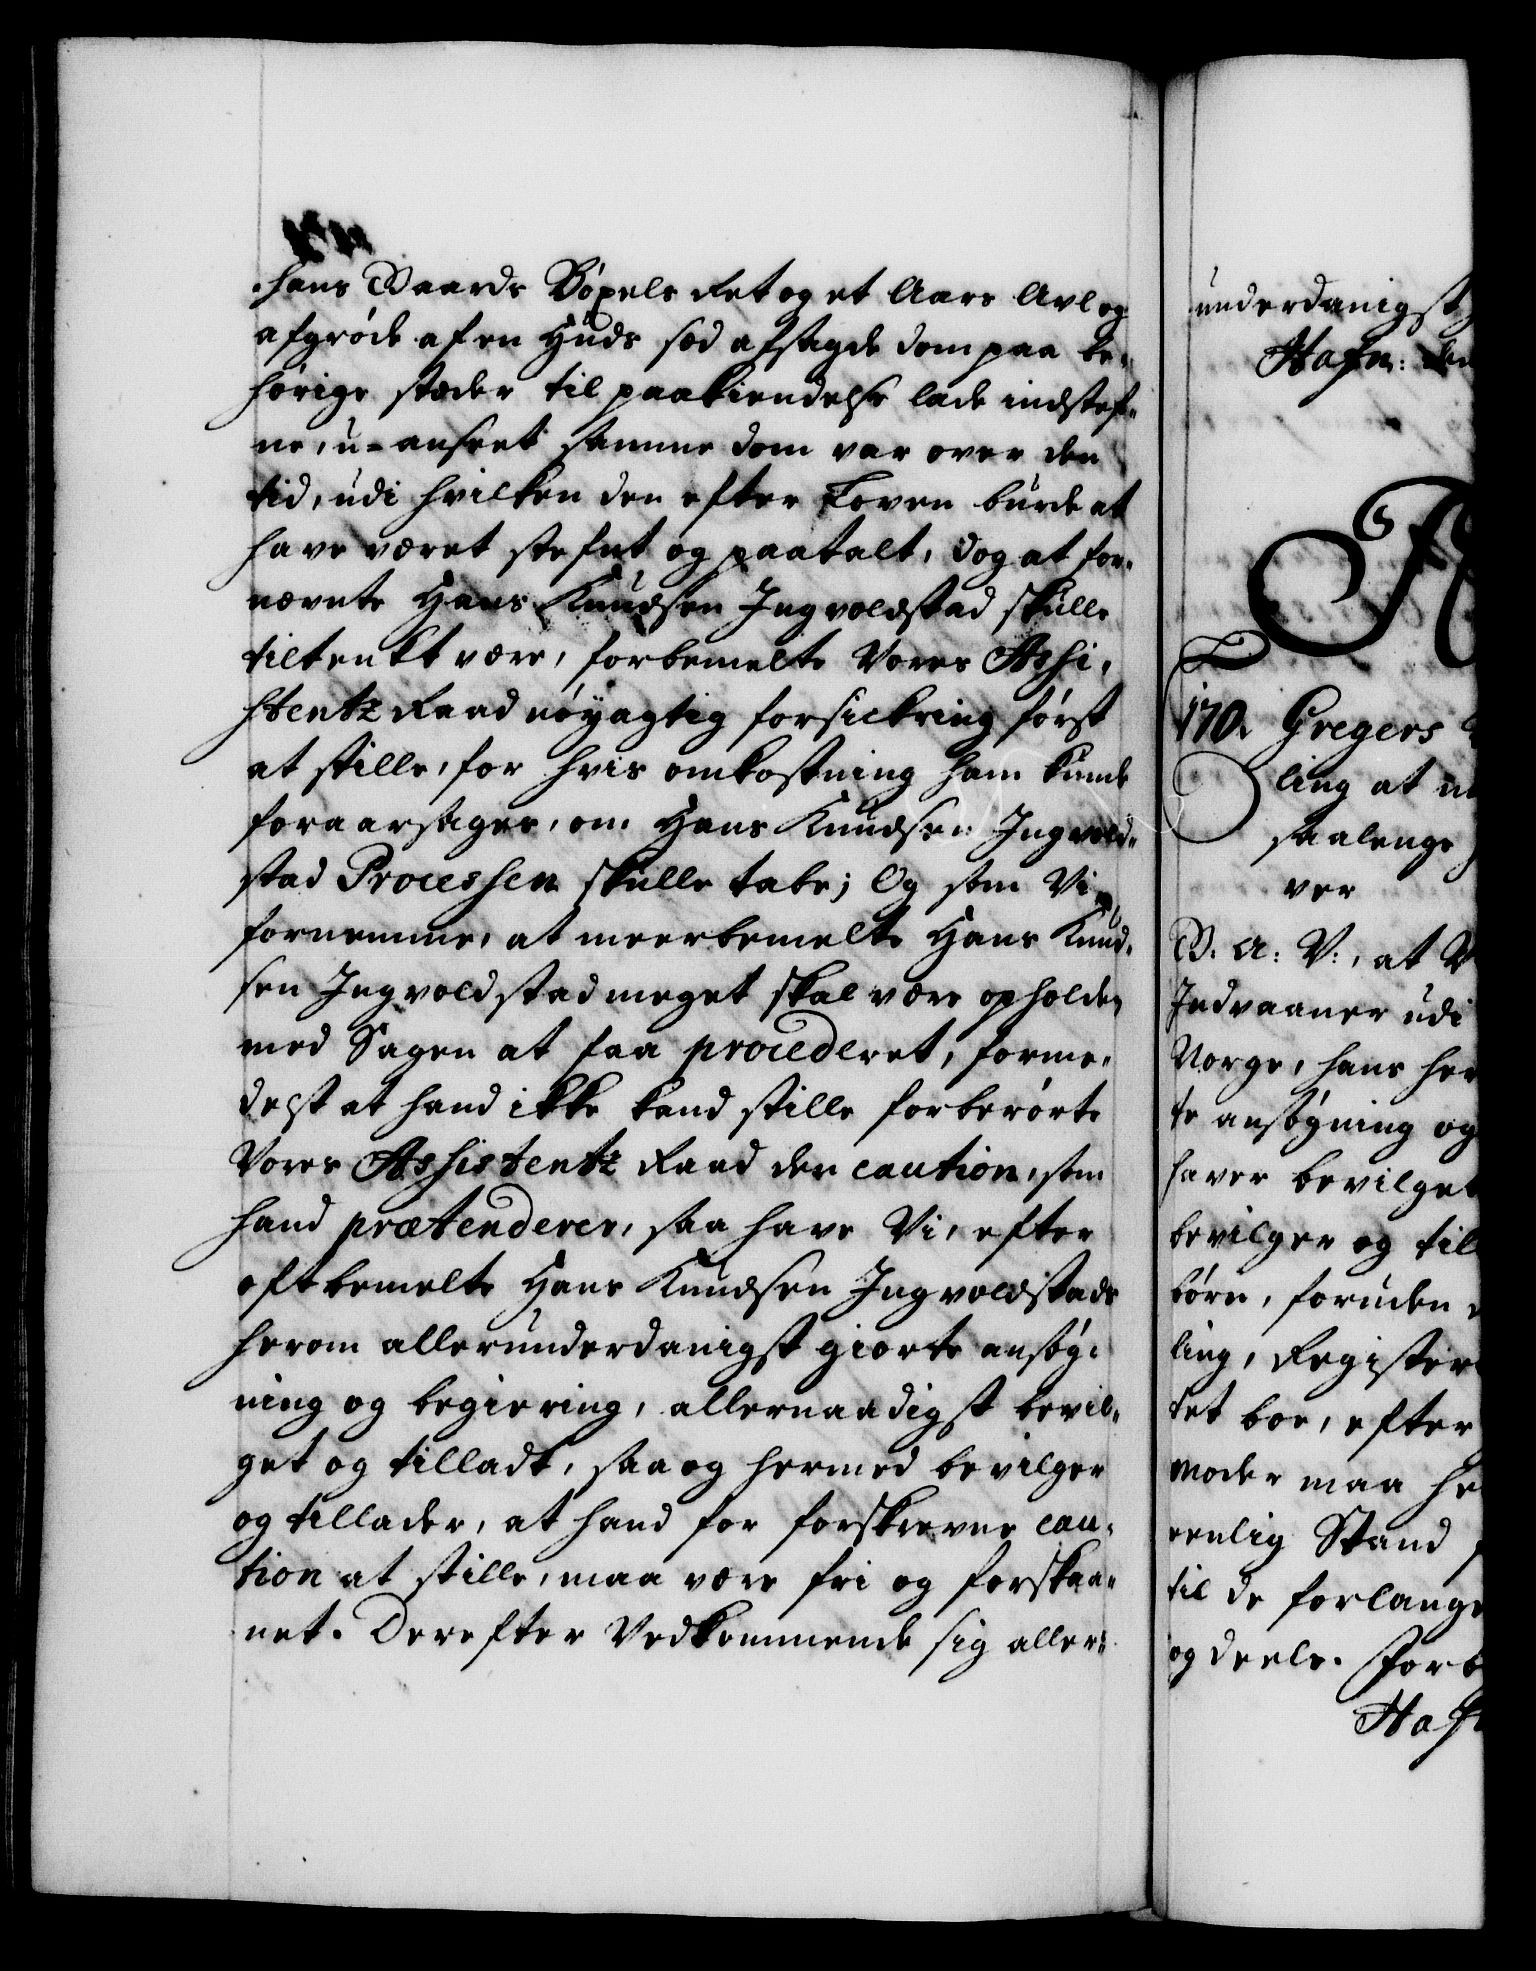 hans Gaards Bøpels Ret og et Aars Avl og
afgrøde af en Huds sæd afsagde dom paa be-
hørige stæder til paakiendelse lade indstef-
ne, u-anseet samme dom var over den
tid, udi hvilken den efter Loven burde at
have været stefnt og paatalt, dog at for-
nævnte Hans Knudsen Ingvoldstad skulle
tiltenkt være, forbemelte Vores Assi-
stentz Raad nøyagtig forsickring først
at stille, for hvis omkostning ham kunde
foraarsages, om Hans Knudsen Ingvold-
stad Processen skulle tabe; Og som Vi
fornemme, at meerbemelte Hans Knud-
sen Ingvoldstad meget skal være opholden
med Sagen at faa procederet, forme-
delst at hand ikke kand stille forberørte
Vores Assistentz Raad den caution, som
hand prætenderer, saa have Vi, efter
oftbemelte Hans Knudsen Ingvoldstads
herom allerunderdanigst giorte ansøg-
ning og begiering, allernaadigst bevil-
get og tilladt, saa og hermed bevilger
og tillader, at hand for forskrevne cau-
tion at stille, maa være fri og forskaa-
net. Derefter Vedkommende sig aller-
underdanigst
Hafn: den
170. Gregers
ling at
saalenge
ver
G. A: V:, at V
Indvaaner udi
Norge, hans her
te ansøgning og
haver bevilget
bevilger og til
børn, foruden
ling, Register
tet boe, efter
moder maa he
eenlig Stand
til de forlange
og deele. Forb
Haf